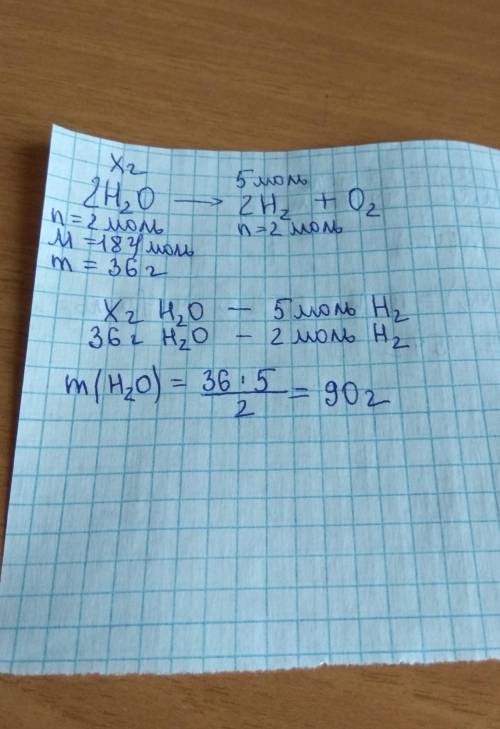 xг 5 моль
2H₂O → 2H₂ + O₂
n = 2 моль n = 2 моль
M = 18 г/моль
m = 36 г
xг H₂O — 5 моль H₂
36 г H₂O — 2 моль H₂
m(H₂O) = 36 · 5 / 2 = 90 г